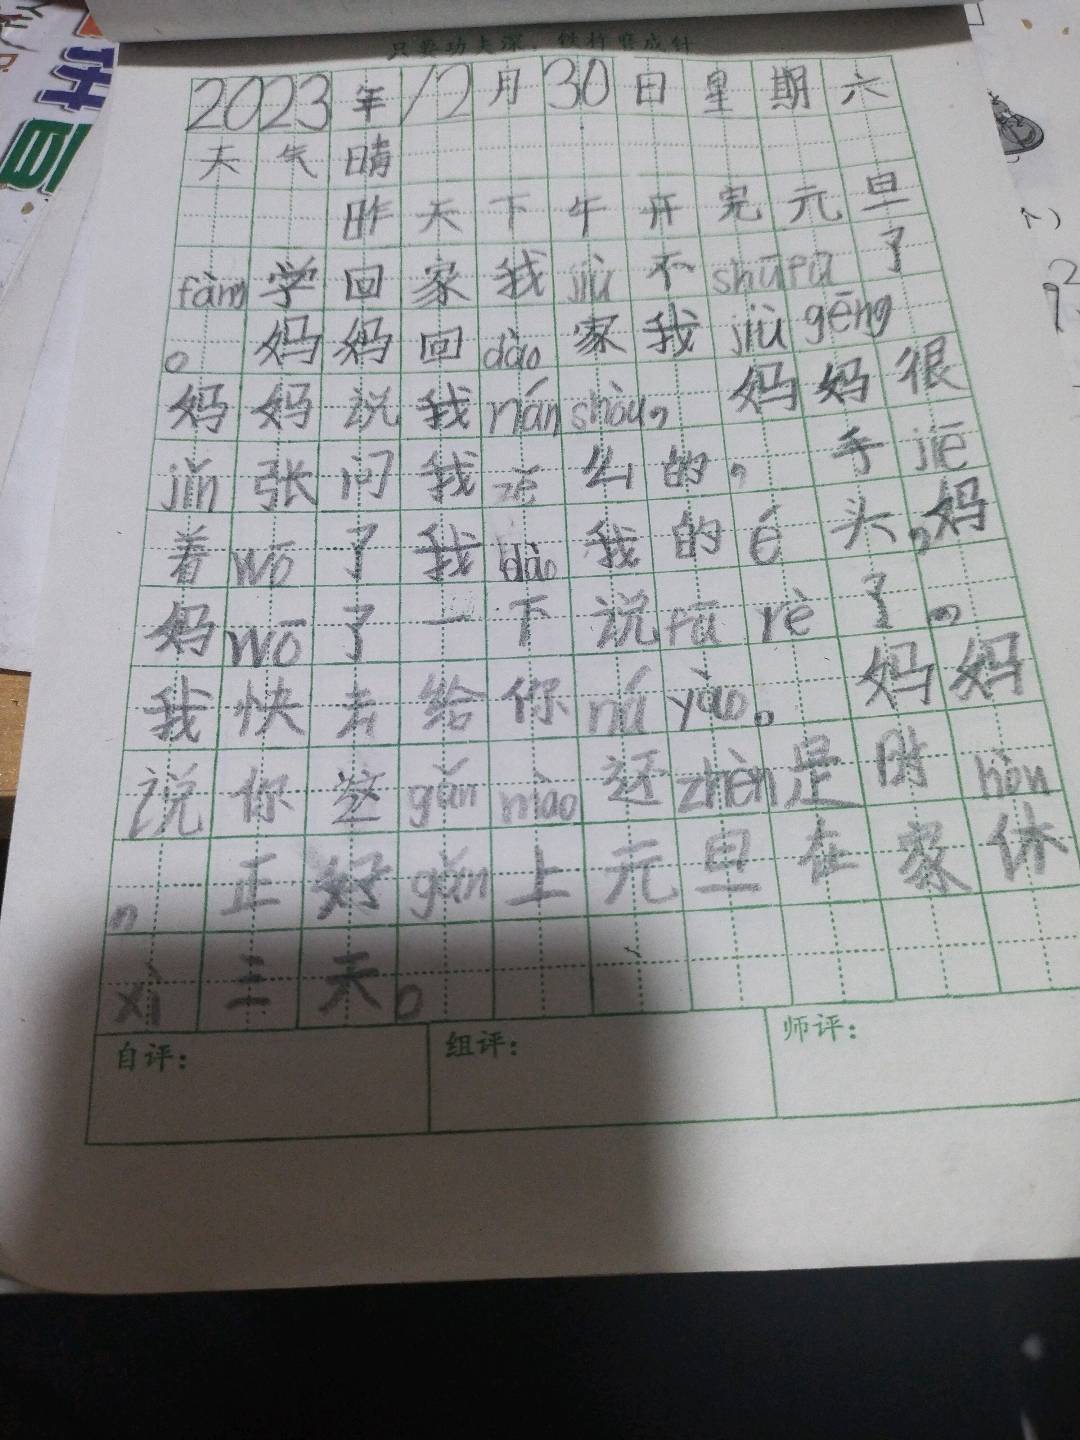 只要功夫深，铁杵磨成针
2023年12月30日星期六
天气晴
昨天下午开完元旦
fàng学回家我jiù不shūfu了
。妈妈回dào家我jiù gēng
妈妈说我nán shòu，妈妈很
jǐn张问我zě么的，手jiē
着wō了我dào我的é头，妈
妈wō了一下说fā rè了。
我快去给你ná yào。妈妈
说你这gǎn mào还zhèn是时hòu
，正好gǎn上元旦在家休
xi三天。
自评：
组评：
师评：